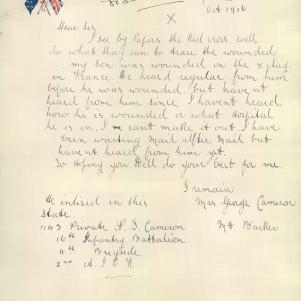 Oct 1916
X
Dear Sir
I see by Papers the Red Cross will
do what thay can to trace the wounded
my son was wounded on the 8 Aug.
in France We heard regular from him
before he was wounded. but havent
heard from him since I havent heard
how he is wounded or what Hospital
he is in. I cant make it out I have
been waiting Mail after Mail but
havent heard from him yet.
So Hoping you Will do your best for me.
I remain
He enlised in this
Mrs George Cameron
State
Mt Barker
Private Cameron
16th Infantry Battalion
4th Brigade
2nd A.I.F.